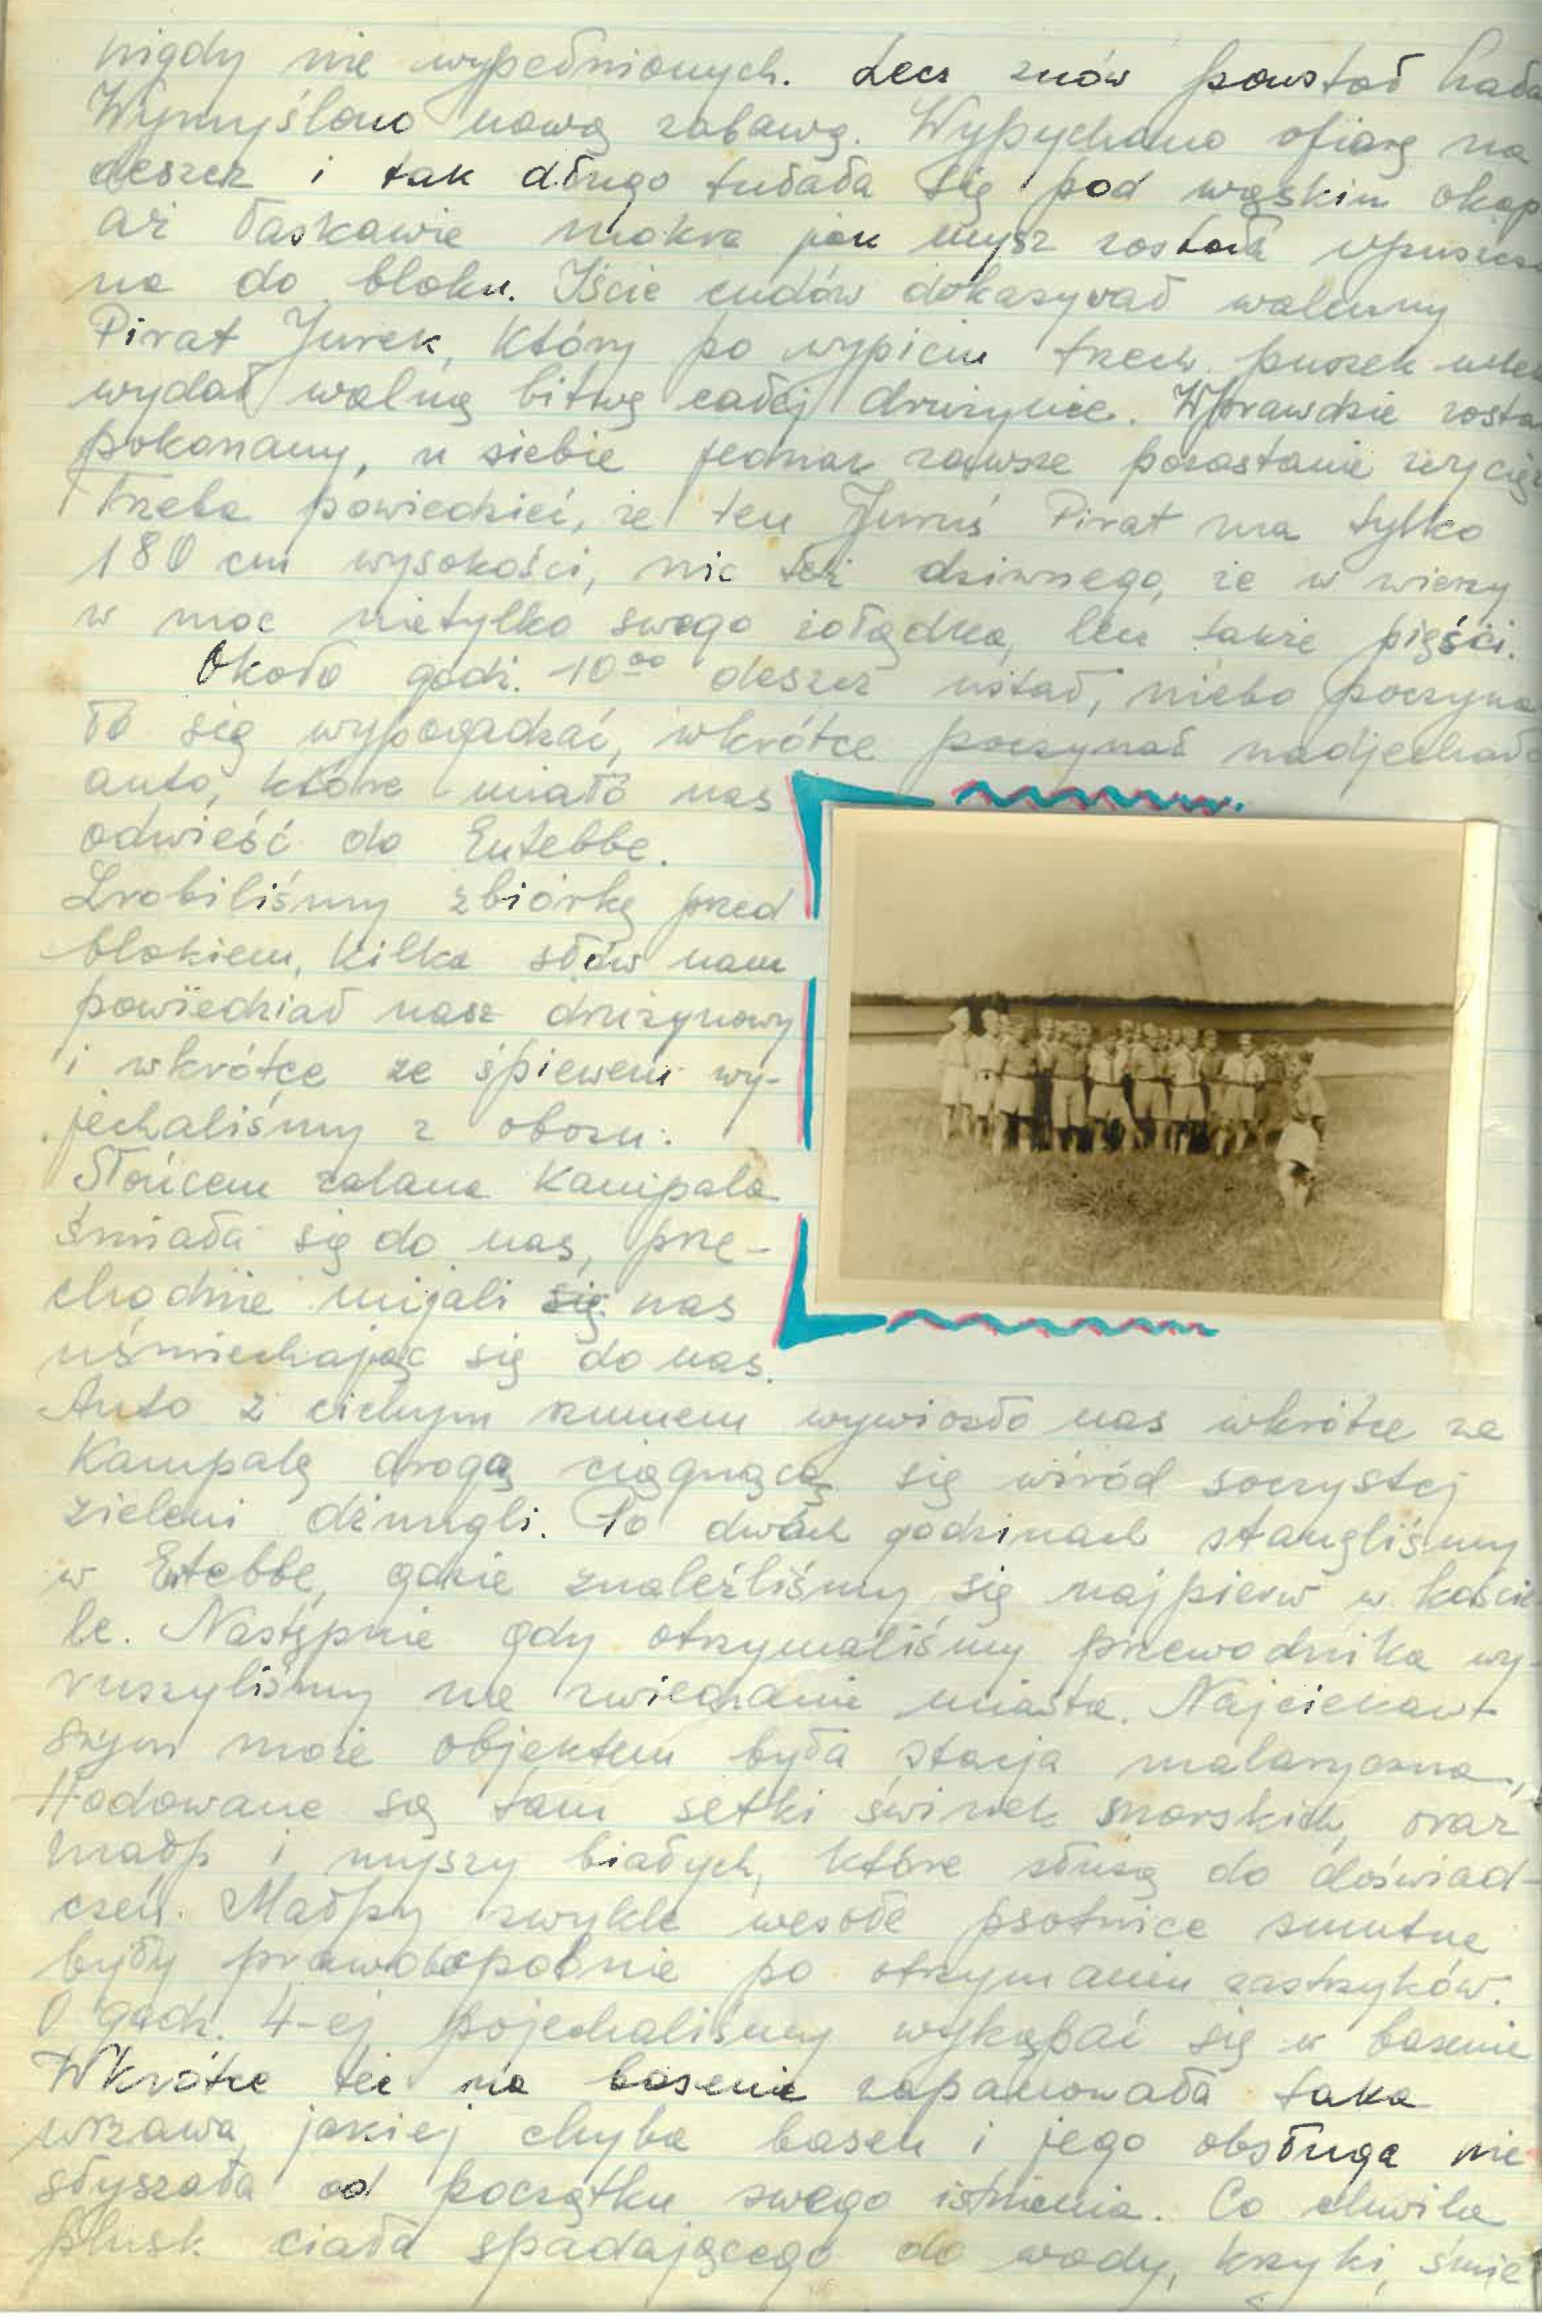 nigdy nie wypełnionych. Lecz znów powstał hała
Wymyślono nową zabawę. Wypychano ofiarę na
deszcz i tak długo tułała się pod wąskim okap
aż łaskawie mokra jak mysz została wpuszczo
na do bloku. Iście cudów dokazywał walczny
Pirat Jurek, który po wypiciu trzech puszek mlek
wydał walną bitwę całej drużynie. Wprawdzie zosta
pokonany, u siebie jednak zawsze pozostanie zwycięz
Trzeba powiedzieć, że ten Juruś Pirat ma tylko
180 cm wysokości, nic też dziwnego, że w wierzy
w moc nietylko swego żołądka, lecz także pięści.
Około godz. 10⁰⁰ deszcz ustał, niebo poczyna
ło się wypogadzać, wkrótce poczynał nadjechało
auto, które miało nas
odwieść do Entebbe.
Zrobiliśmy zbiórkę przed
blokiem, kilka słów nam
powiedział nasz drużynowy
i wkrótce ze śpiewem wy-
jechaliśmy z obozu.
Słońcem zalana Kampala
śmiała się do nas, prze-
chodnie mijali się nas
uśmiechając się do nas.
Auto z cichym szumem wywiozło nas wkrótce za
Kampalę drogą ciągnącą się wśród soczystej
zieleni dżungli. Po dwóch godzinach stanęliśmy
w Entebbe, gdzie znaleźliśmy się najpierw w koście
le. Następnie gdy otrzymaliśmy przewodnika wy-
ruszyliśmy na zwiedzanie miasta. Najciekaw-
szym może objektem była stacja malaryczna,
Hodowane są tam setki świnek morskich, oraz
małp i myszy białych, które służą do doświad-
czeń. Małpy zwykle wesołe psotnice smutne
były prawdopodobnie po otrzymaniu zastrzyków.
O godz. 4-ej pojechaliśmy wykąpać się w basenie
Wkrótce też na basenie zapanowała taka
wrzawa, jakiej chyba basen i jego obsługa nie
słyszała od początku swego istnienia. Co chwila
plusk ciała spadającego do wody, krzyki, śmie